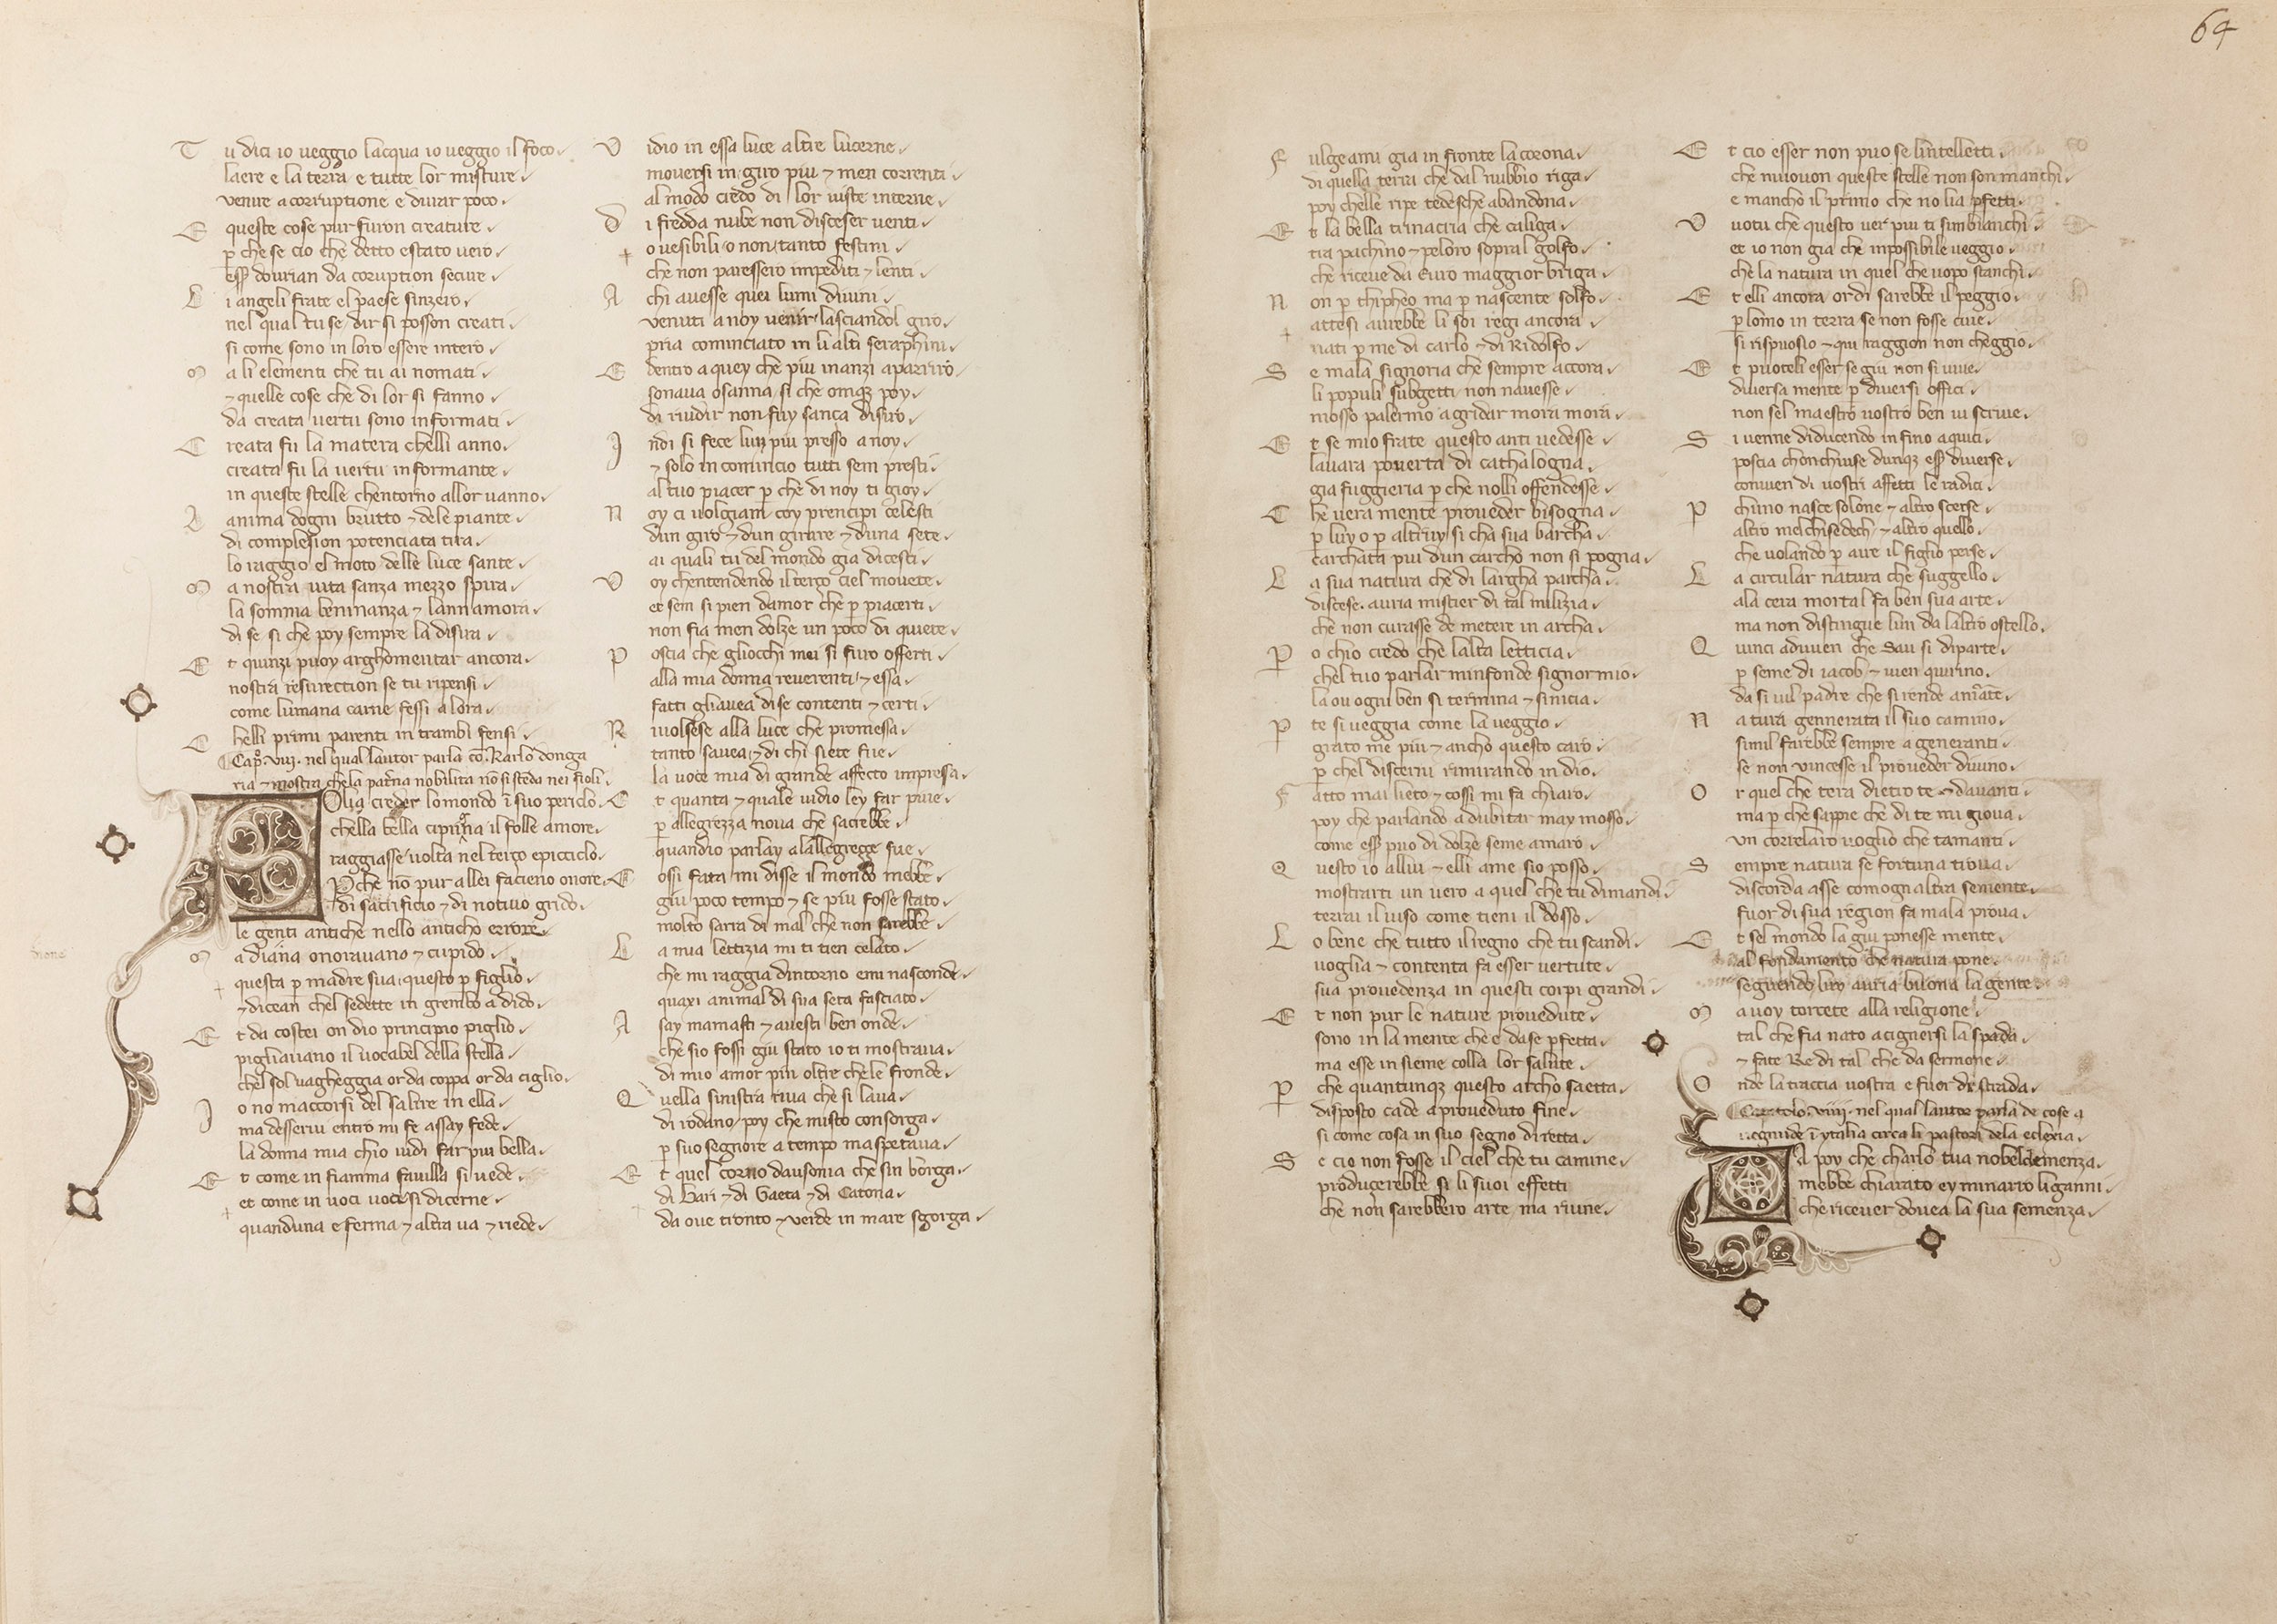 64
T u dici io ueggio lacqua io ueggio il foco
laere e la terra e tutte lor misture
venire a corruptione e durar poco
E queste cose pur furon creature
p che se cio che detto e stato uero
esser dourian da coruption secure
L i angeli frate el paese sinzero
nel qual tu se dir si posson creati
si come sono in loro essere intero
M a li elementi che tu ai nomati
⁊ quelle cose che di lor si fanno
da creata uertu sono informati
C reata fu la matera chelli anno
creata fu la uertu informante
in queste stelle chentorno allor uanno
L anima dogni brutto ⁊ dele piante
di complesion potenciata tira
lo raggio el moto delle luce sante
M a nostra uita sanza mezzo spira
la somma beninanza ⁊ lannamora
di se si che poy sempre la disira
E t quinzi puoy arghomentar ancora
nostra resurection se tu ripensi
come lumana carne fessi alora
C helli primi parenti intrambi fensi
Cap.º viij. nel qual lautor parla co Karlo donga
ria ⁊ mostra che la patna nobilita no si steda nei fioli
S Olia creder lo mondo i suo periclo
chella bella ciprina il folle amore
raggiasse uolta nel terço epiciclo
P che no pur allei facieno onore
di sacrificio ⁊ di notiuo grido
le genti antiche nello anticho errore
M a diana onorauano ⁊ cupido
questa p madre sua questo p figlio
⁊ dicean chel sedette in grembo a dido
E t da costei on dio principio piglio
pigliauano il uocabel della stella
chel sol uagheggia or da coppa or da ciglio
I o no maccorsi del salire in ella
ma desserui entro mi fe assay fede
la donna mia chio uidi far piu bella
E t come in fiamma fauilla si uede
et come in uoci uoce si dicerne
quanduna e ferma ⁊ altra ua ⁊ riede
V idio in essa luce altre lucerne
mouersi in giro piu ⁊ men correnti
al modo credo di lor uiste interne
D i fredda nube non disceser uenti
o uesibili o non tanto festini
che non paressero impediti ⁊ lenti
A chi auesse quei lumi diuini
venuti a noy uenir lasciandol giro
pria cominciato in li alti seraphini
E dentro a quey che piu inanzi apariro
sonaua osanna si che omqz poy
di riudir non fuy sança disiro
I ndi si fece lun piu presso a noy
⁊ solo in comincio tutti sem presti
al tuo piacer p che di noy ti gioy
N oy ci uolgiam coy prencipi celesti
dun giro ⁊ dun girare ⁊ duna sete
ai quali tu del mondo gia dicesti
V oy chentendendo il terço ciel mouete
et sem si pien damor che p piacerti
non fia men dolze un poco di quiete
P oscia che gliocchi mei si furo offerti
alla mia donna reuerenti ⁊ essa
fatti gliauea di se contenti ⁊ certi
R iuolsese alla luce che promessa
tanto sauea ⁊ di chi siete fue
la uoce mia di grande affecto impressa
E t quanta ⁊ quale uidio ley far piue
p allegrezza noua che sacrebbe
quandio parlay a lallegrezze sue
C ossi fata mi disse il mondo mebbe
giu poco tempo ⁊ se piu fosse stato
molto sarra di mal che non sarebbe
L a mia lettizia mi ti tien celato
che mi raggia dintorno emi nasconde
quaxi animal di sua seta fasciato
A ssay mamasti ⁊ auesti ben onde
che sio fossi giu stato io ti mostraua
di mio amor piu oltre che le fronde
Q uella sinistra riua che si laua
di rodano poy che misto con sorga
p suo segnore a tempo maspetaua
E t quel corno dausonia che sin borga
di Bari ⁊ di Gaeta ⁊ di Catona
da oue tronto ⁊ verde in mare sgorga
F ulgeami gia in fronte la corona
di quella terra che dal nubbio riga
poy chelle ripe tedesche abandona
E t la bella trinacria che caliga
tra pachino ⁊ peloro sopral golfo
che riceue da Euro maggior briga
N on p thipheo ma p nascente solfo
attesi aurebbe li soi regi ancora
nati p me di carlo ⁊ di Ridolfo
S e mala signoria che sempre accora
li populi subgetti non nauesse
mosso palermo a gridar mora mora
E t se mio frate questo anti uedesse
lauara pouerta di cathalogna
gia fuggieria p che nolli offendesse
C he uera mente proueder bisogna
p luy o p altruy si cha sua barcha
carchata piu dun carcho non si pogna
L a sua natura che di largha parcha
discese auria mistier di tal milizia
che non curasse de metere in archa
P o chio credo che lalta letticia
chel tuo parlar minfonde signor mio
la ou ogni ben si termina ⁊ sinicia
P te si ueggia come la ueggio
grato me piu ⁊ ancho questo caro
p chel discerni rimirando in dio
F atto mai lieto ⁊ cossi mi fa chiaro
poy che parlando a dubitar may mosso
come ess puo di dolze seme amaro
Q uesto io allui ⁊ elli ame sio posso
mostrarti un uero a quel che tu dimandi
terrai il uiso come tieni il dosso
L o bene che tutto il regno che tu scandi
uoglia ⁊ contenta fa esser uertute
sua prouedenza in questi corpi grandi
E t non pur le nature prouedute
sono in la mente che e da se pfetta
ma esse insieme colla lor salute
P che quantunqz questo archo saetta
disposto cade a proueduto fine
si come cosa in suo segno diretta
S e cio non fosse il ciel che tu camine
producerebbe si li suoi effetti
che non sarebbero arte ma ruine
E t cio esser non puo se lintelletti
che muouon queste stelle non son manchi
e mancho il primo che no lia pfetti
V uotu che questo uer piu ti simbianchi
et io non gia che inpossibile ueggio
che la natura in quel che uopo stanchi
E t elli ancora or di sarebbe il peggio
p lomo in terra se non fosse ciue
si rispuosio ⁊ qui raggion non cheggio
E t puoteli esser se giu non si uiue
diuersa mente p diuersi offici
non sel maestro uostro ben ui scriue
S i uenne diducendo infino a quici
poscia chonchiuse dunqz ess diuerse
conuen di uostri affetti le radici
P chuno nasce solone ⁊ altro scerse
altro melchisedech ⁊ altro quello
che uolando p aire il figlio perse
L a circular natura che suggello
ala cera mortal fa ben sua arte
ma non distingue lun da laltro ostello
Q uinci aduiuen che Sau si diparte
p seme di iacob ⁊ uien quirino
da si uil padre che si rende a marte
N atura gennerata il suo camino
simil farebbe sempre a generanti
se non uincesse il proueder diuino
O r quel che tera dietro te e dauanti
ma p che sappie che di te mi gioua
un correlaro uoglio che tamanti
S empre natura se fortuna troua
discorda asse comogn altra semente
fuor di sua region fa mala proua
E t sel mondo la giu ponesse mente
al fondamento che natura pone
seguendo luy auria buona la gente
M a uoy torcete alla religione
tal che fia nato a cignersi la spada
⁊ fate Re di tal che da sermone
O nde la traccia uostra e fuor di strada
Capitolo viiij. nel qual lautor parla de cose a
uegnire i ytalia circa li pastori dela eclexia
D A poy che charlo tua nobel clemenza
mebbe chiarato ey minarro liganni
che riceuer douea la sua semenza